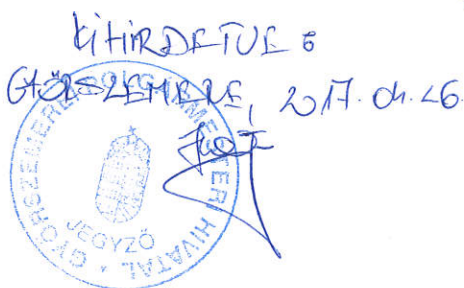 KIHIRDETVE:
GYŐRSZEMERE, 2017. 04. 26.
GYŐRSZEMEREI POLGÁRMESTERI HIVATAL
JEGYZŐ